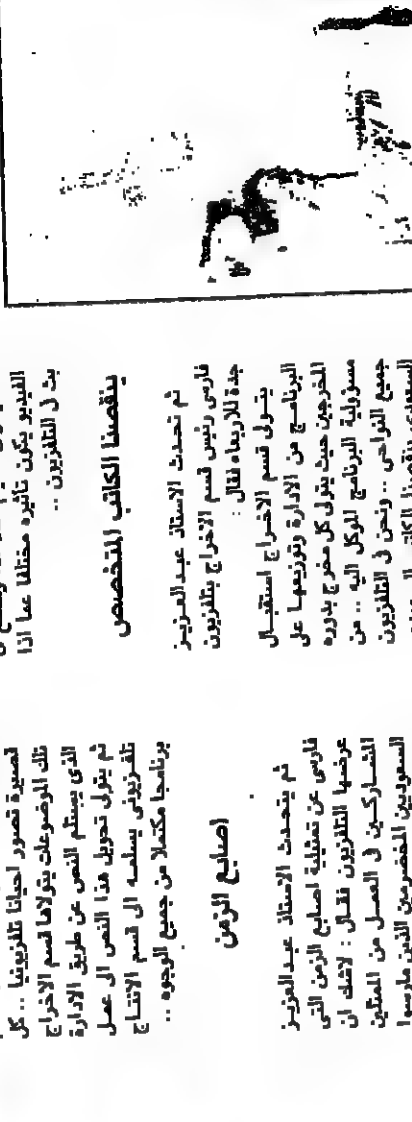 الفيديو يكون تأثيره مختلفا عما اذا
بث في التلفزيون ..
ينقصنا الكاتب المتخصص
ثم تحدث الاستاذ عبدالعزيز
فارسي رئيس قسم الاخراج بتلفزيون
جدة للاربعاء فقال :
يتولى قسم الاخراج استقبال
البرنامج من الادارة وتوزيعها على
المخرجين حيث يتولى كل مخرج بدوره
مسؤولية البرنامج الموكل اليه .. من
جميع النواحي .. ونحن في التلفزيون
السعودي ينقصنا الكاتب
قصيرة تصور احيانا تلفزيونيا .. كل
تلك الموضوعات يتولاها قسم الاخراج
الذي يستلم النص عن طريق الادارة
ثم يتولى تحويل هذا النص الى عمل
تلفزيوني يسلمه الى قسم الانتاج
برنامجا مكتملا من جميع الوجوه ..
اصابع الزمن
ثم يتحدث الاستاذ عبدالعزيز
فارسي عن تمثيلية اصابع الزمن التي
عرضها التلفزيون فقال : لاشك ان
المشاركين في العمل من الممثلين
السعوديين المخضرمين الذين مارسوا